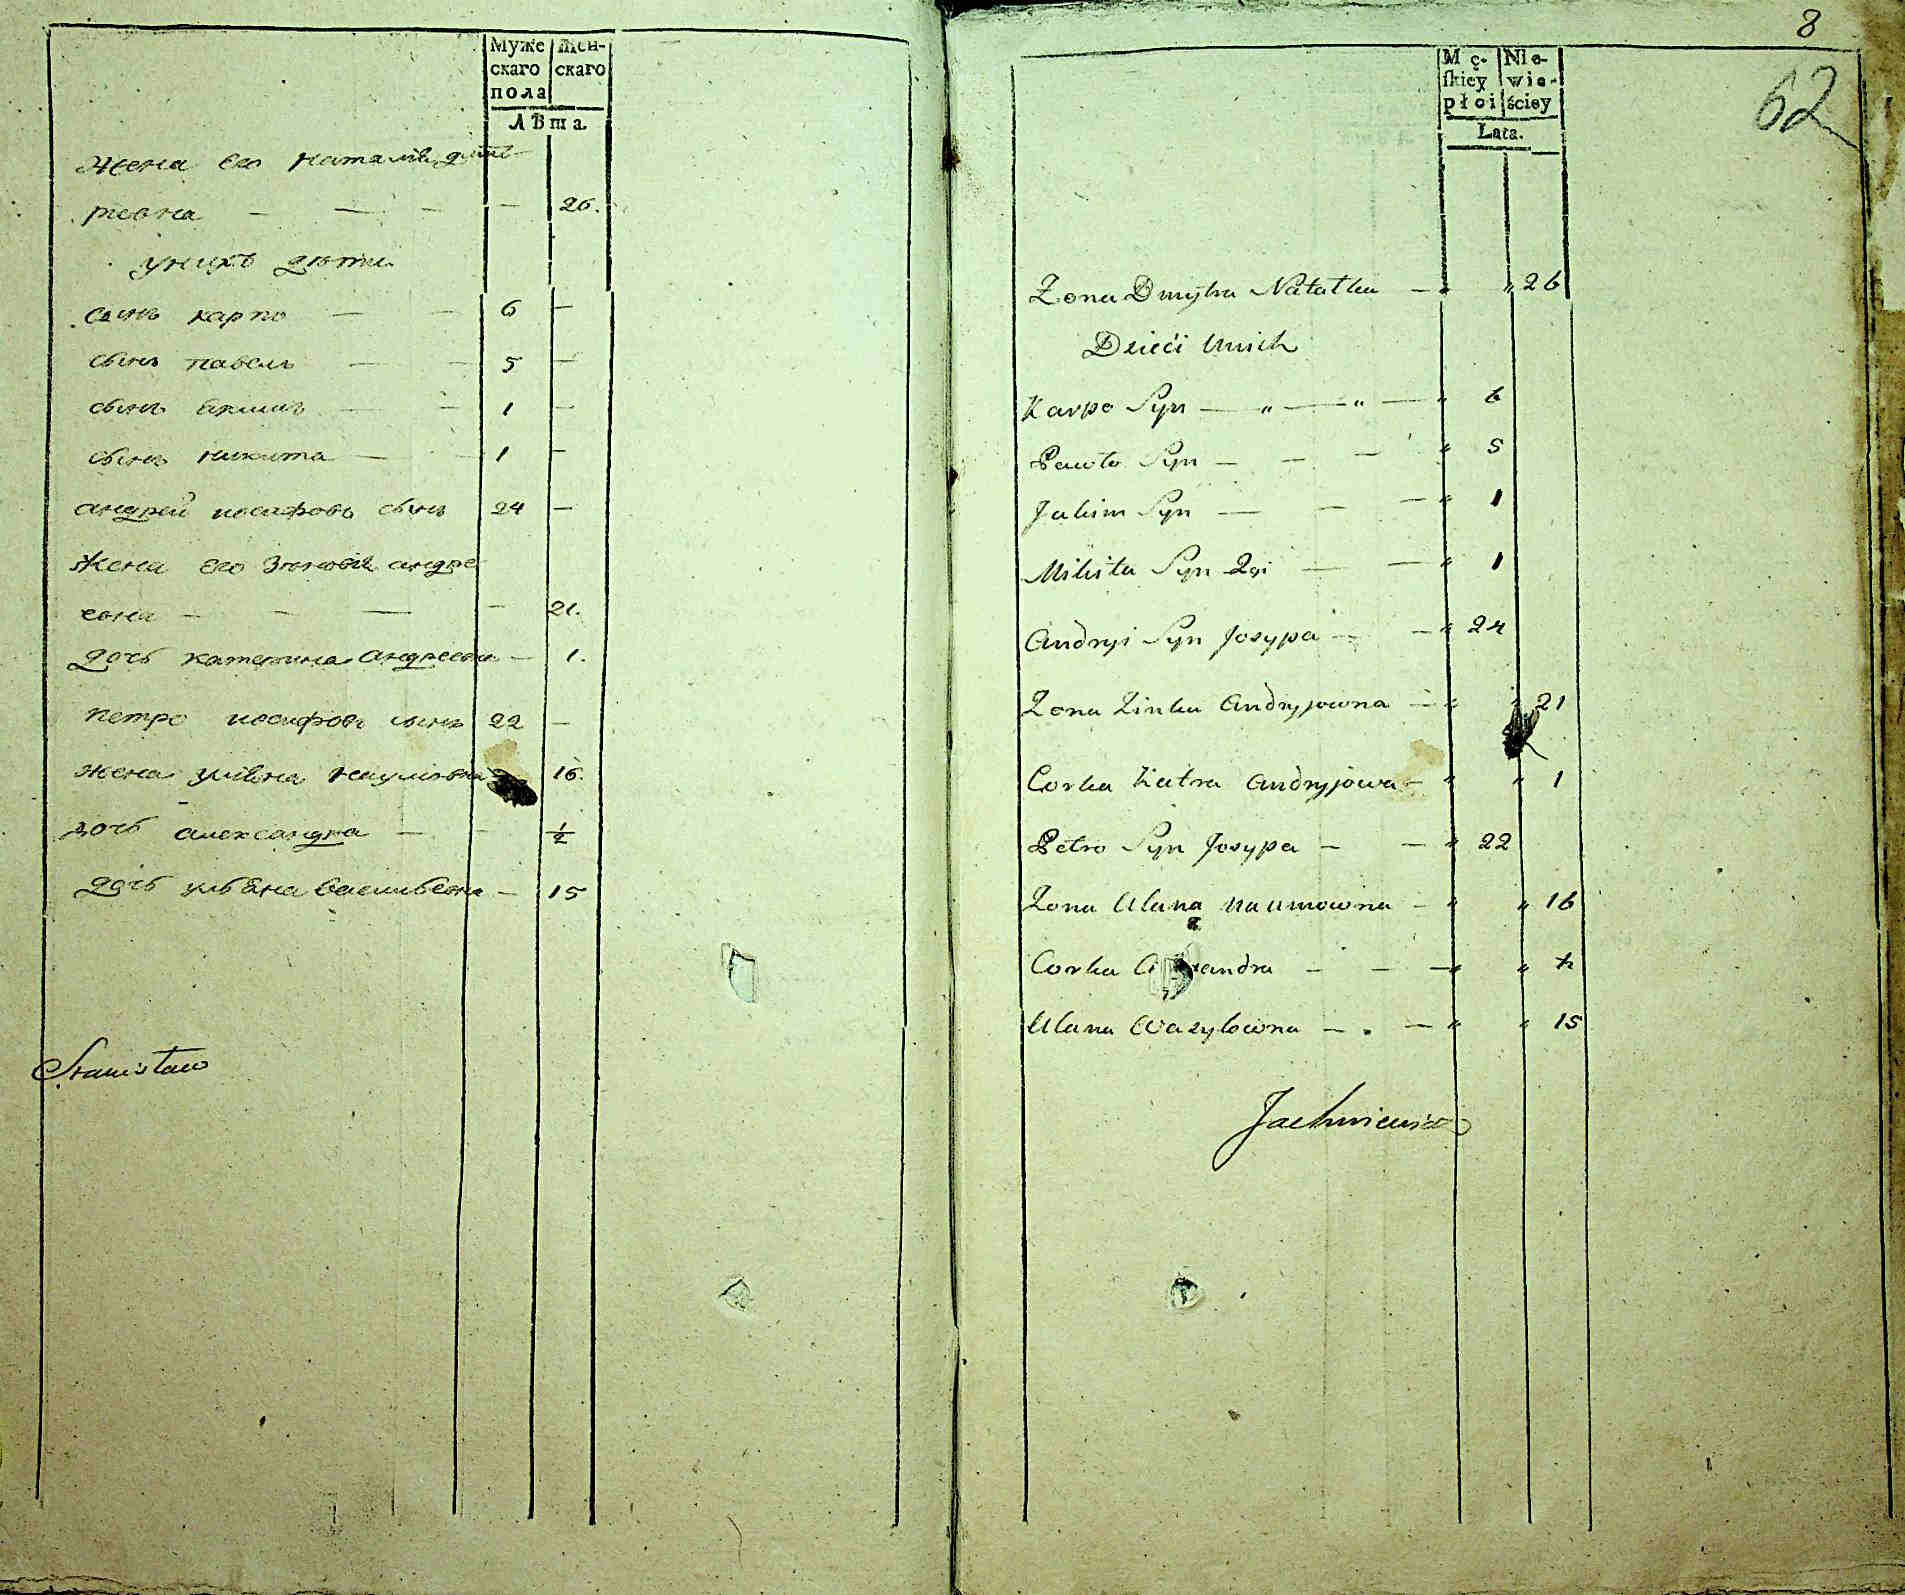 Муже
скаго
пола
Жен-
скаго
лѣта.
Жена его наталия дмит-
ревна — — — — 26.
у нихъ дѣти
сынъ карпо — — 6 —
сынъ павелъ — — 5 —
сынъ екимъ — — 1 —
сынъ никита — — 1 —
андрей иосифовъ сынъ 24 —
жена его зѣновия андре
евна — — — — 21.
дочь катерина андреевна — 1.
петро иосифовъ сынъ 22 —
жена улияна наумовна 16.
дочь александра — — ½
дочь ульяна васильевна — 15
Stanisław
8
62
Mę-
ſkiey
płci
Nie-
wie-
ściey
Lata.
Zona Dmytra Natalka — " " 26
Dzieci Unich
Karpo Syn — " — " — " 6
Pawło Syn — — — " 5
Jakim Syn — — — " 1
Mikita Syn 2gi — — " 1
Andryi Syn Josypa — — " 24
Zona Zinka Andryjowna — " " 21
Corka Katra Andryjowa — " " 1
Petro Syn Josypa — — " 22
Zona Ulana Naumowna — " " 16
Corka — — — " " ½
Ulana Wasylowna — . — " " 15
Jachniewicz